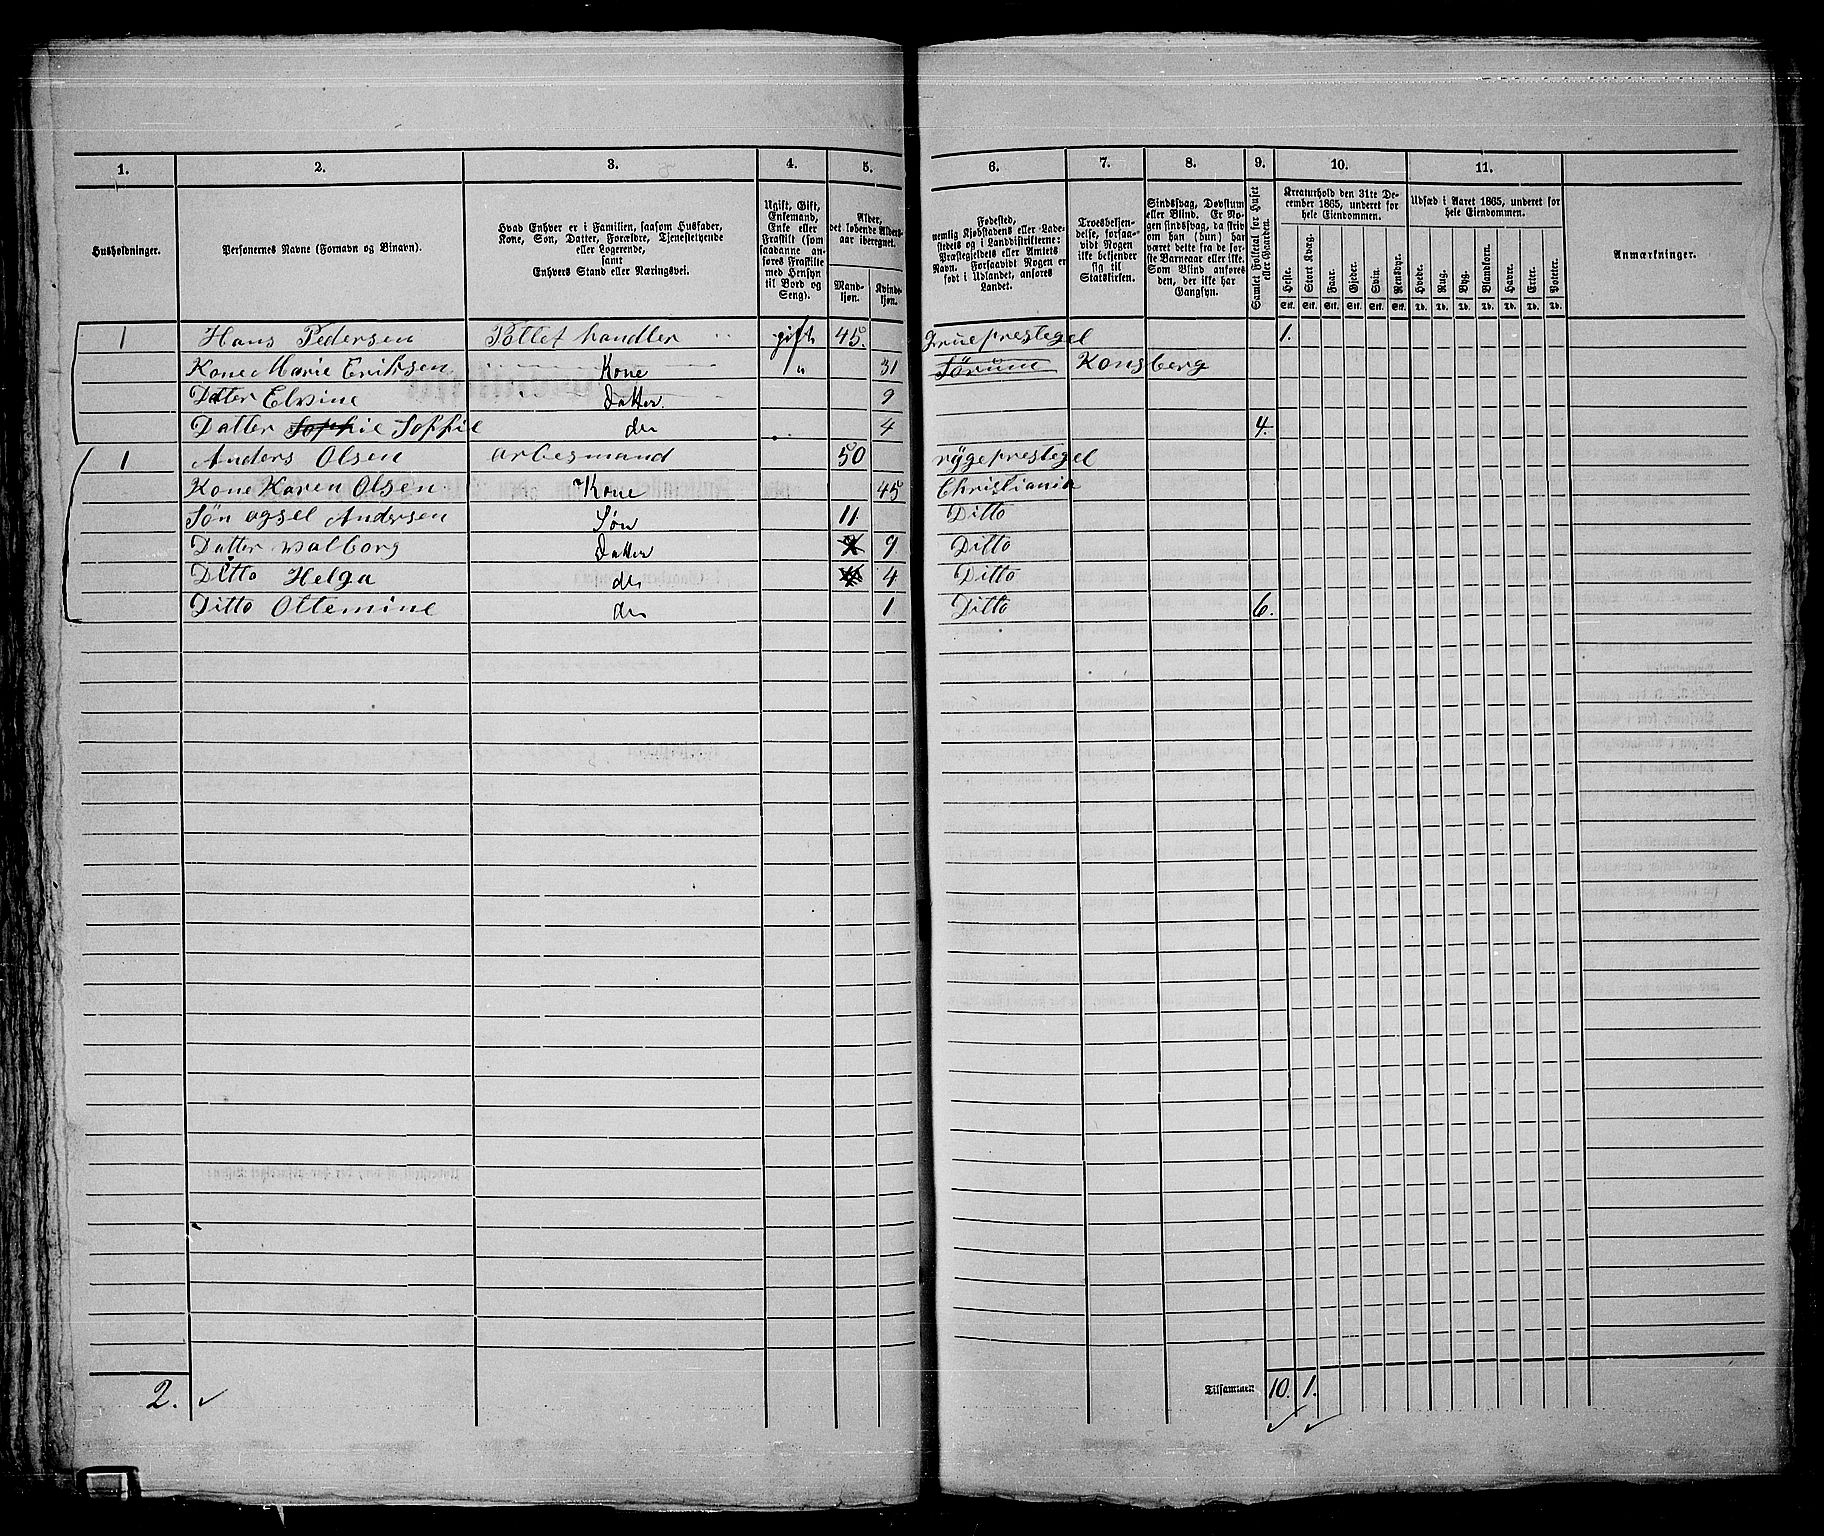 1. 2. 3. 4. 5. 6. 7. 8. 9. 10. 11.
Husholdninger.
Personernes Navne (Fornavn og Binavn).
Hvad Enhver er i Familien, saasom Husfader,
Kone, Søn, Datter, Forældre, Tjenestetyende
eller Logerende,
samt
Enhvers Stand eller Næringsvei.
Ugift, Gift,
Enkemand,
Enke eller
Fraskilt (som
saadanne an-
føres Fraskilte
med Hensyn
til Bord og
Seng).
Alder,
det løbende Alders-
aar iberegnet.
Mand-
kjøn.
Kvinde-
kjøn.
Fødested,
nemlig Kjøbstadens eller Lade-
stedets og i Landdistrikterne:
Præstegjeldets eller Amtets
Navn. Forsaavidt Nogen er
født i Udlandet, anføres
Landet.
Troesbekjen-
delse, forsaa-
vidt Nogen
ikke bekjender
sig til
Statskirken.
Sindssvag, Døvstum
eller Blind. Er No-
gen sindssvag, da skriv
om han (hun) har
været dette fra de før-
ste Barneaar eller ikke.
Som Blind anføres
den, der ikke har
Gangsyn.
Samlet Folketal for Huset
eller Gaarden.
Kreaturhold den 31te De-
cember 1865, underet for
hele Eiendommen.
Heste. Stort Kvæg. Faar. Gjeder. Svin. Rensdyr.
Stk. Stk. Stk. Stk. Stk. Stk.
Udsæd i Aaret 1865, underet for
hele Eiendommen.
Hvede. Rug. Byg. Blandkorn. Havre. Erter. Poteter.
Td. Td. Td. Td. Td. Td. Td.
Anmærkninger.
1 Hans Pedersen Pottet handler gift 45. Grue prestegel 1.
Kone Marie Eriksen Kone " 31 Sørum Konsberg
Datter Elvine Datter. 9
Datter Sophie Sophie do 4 4.
1 Anders Olsen arbesmand 50 rygeprestegel
Kone Karen Olsen Kone 45 Christiania
Søn agsel Andersen Søn 11 Ditto
Datter Walborg Datter 9 Ditto
Ditto Helga do 4 Ditto
Ditto Ottemine do 1 Ditto 6.
2. Tilsammen 10. 1.